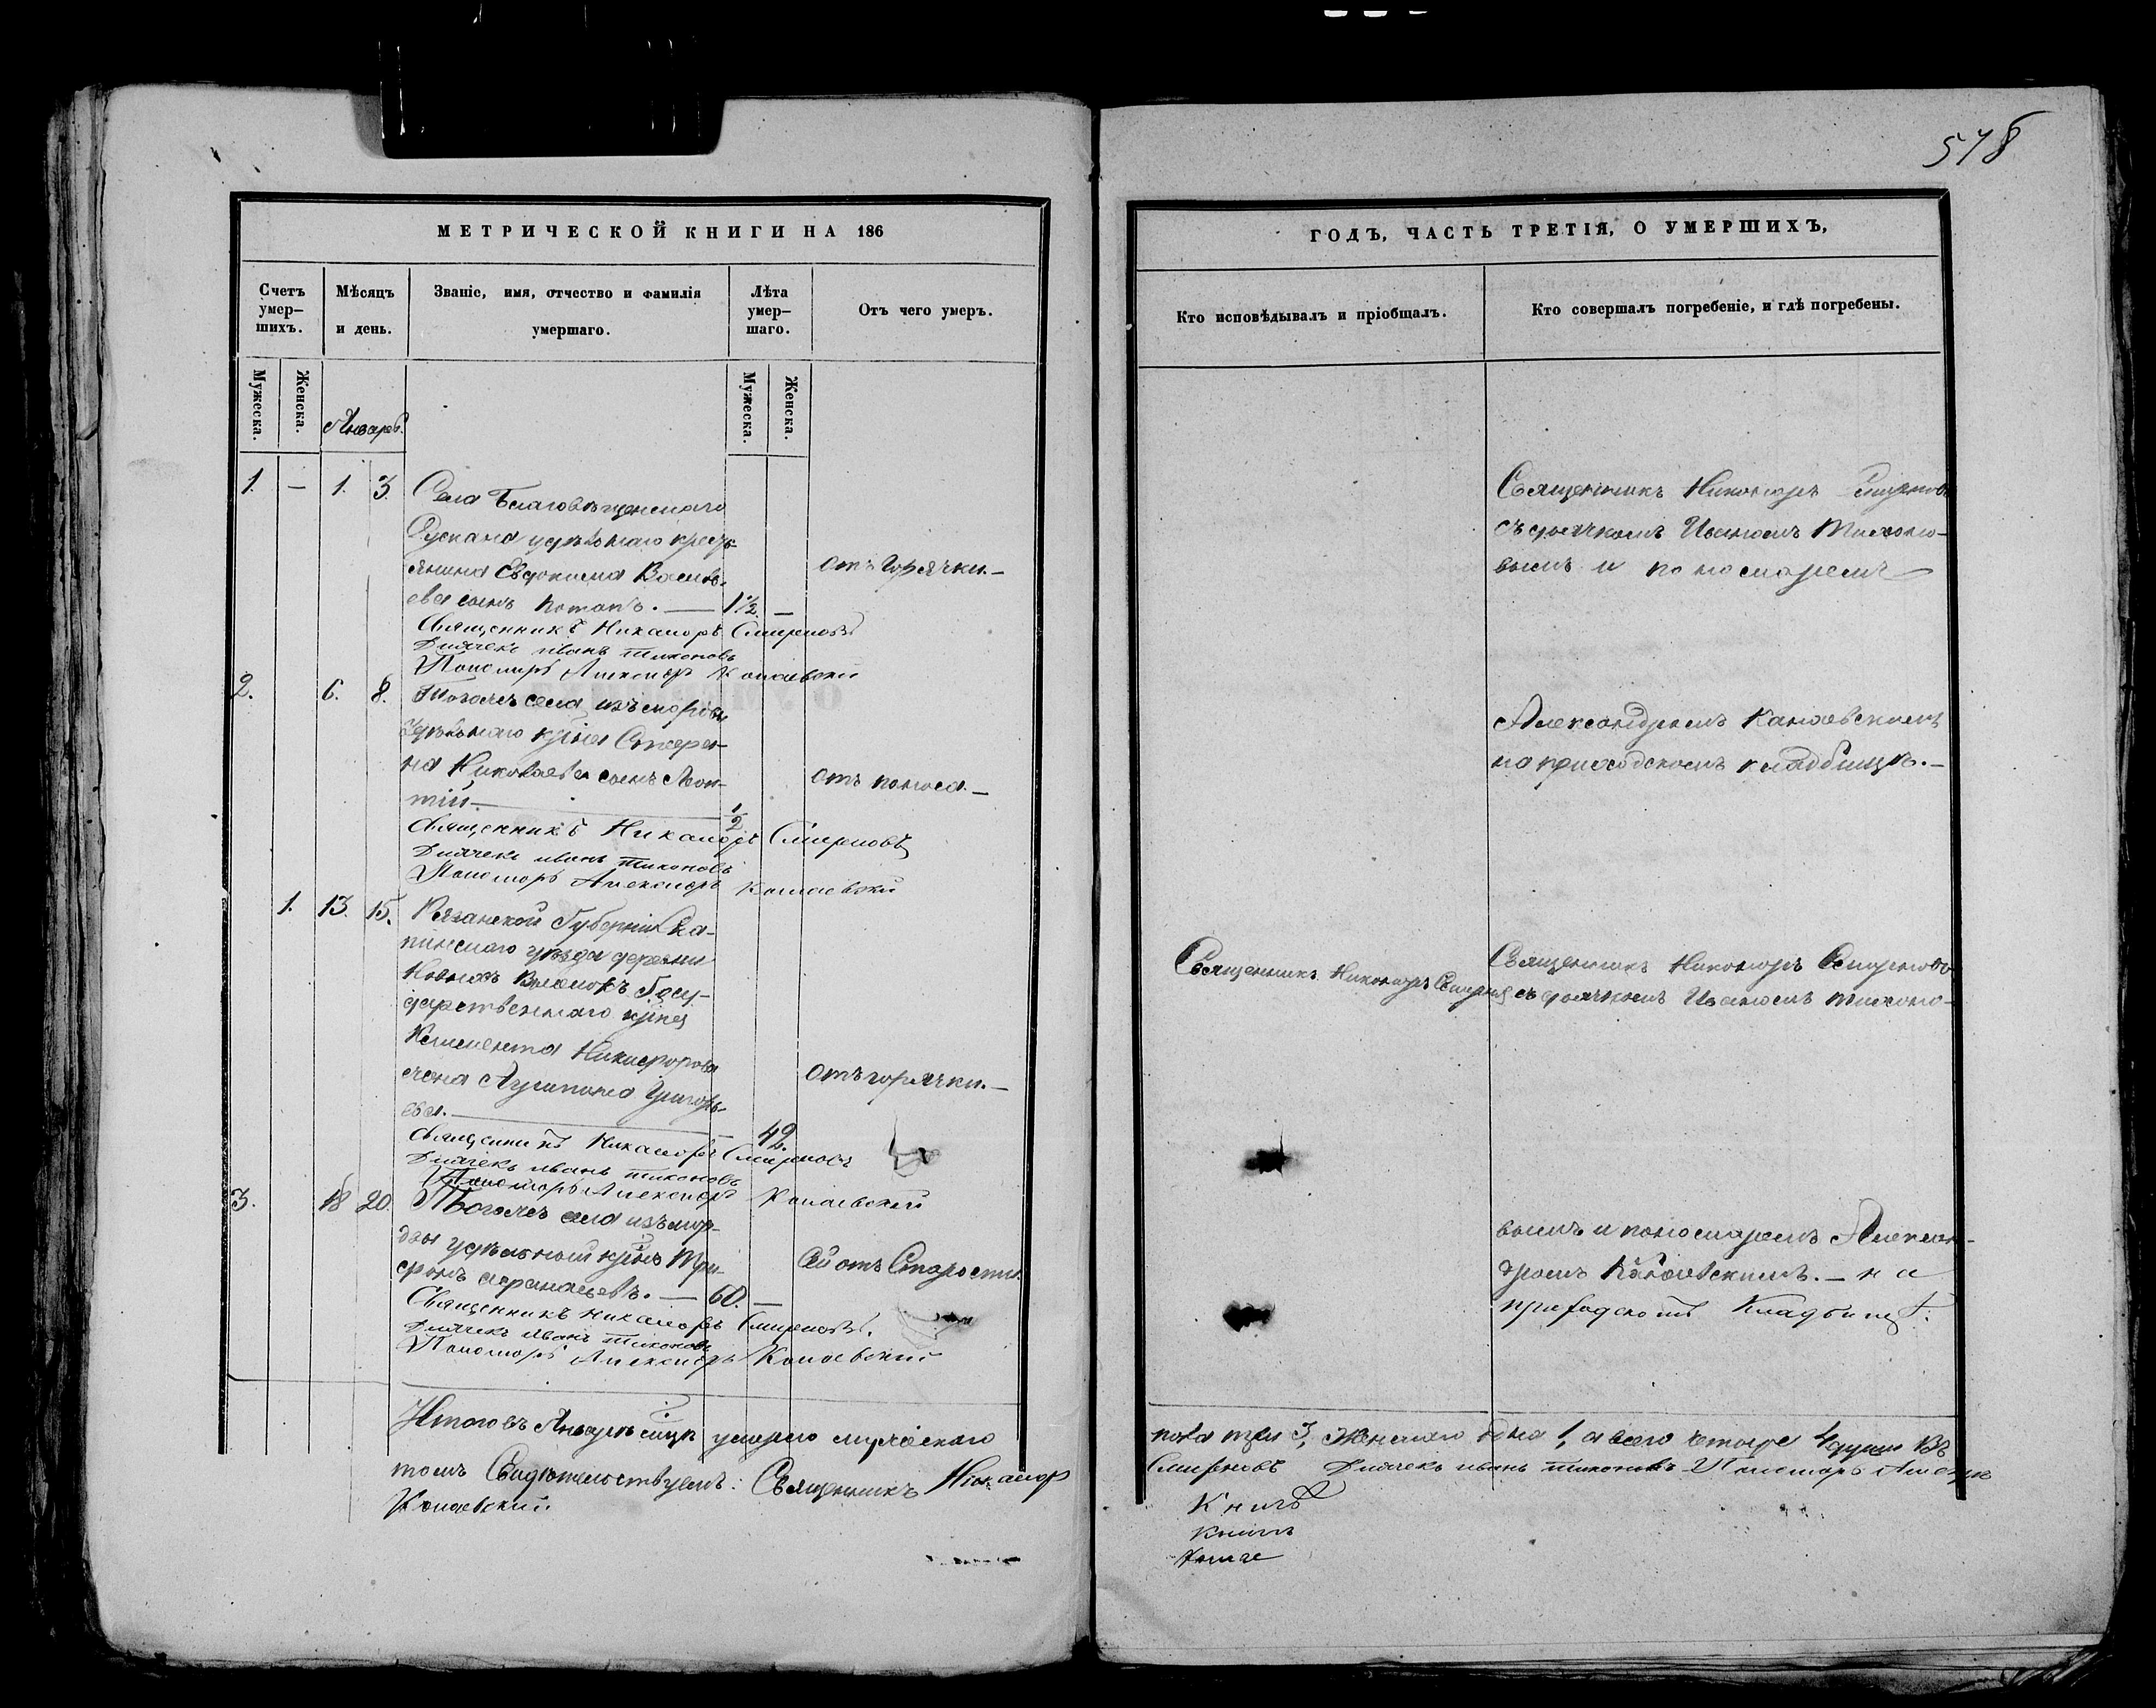 578
МЕТРИЧЕСКОЙ КНИГИ НА 186
Счетъ умер-
шихъ.
Мѣсяцъ
и день.
Званіе, имя, отчество и фамилія
умершаго.
Лѣта
умер-
шаго.
Отъ чего умеръ.
Мужеска.
Женска.
Январь.
Мужеска.
Женска.
1. — 1. 3. Села Благовѣщенскаго
удѣльнаго кресть-
янина Евдокима Василь-
ева сынъ Потапъ. — 1½ — отъ горячки. —
Священникъ Никаноръ Смирновъ
Дьячекъ Иванъ Тихоновъ
Пономарь Александръ Канаевскій
2. 6. 8. Тогоже села изъ мордвы
удѣльнаго кр-на
Николаева сынъ Леон-
тій. — ½ отъ поноса. —
Священникъ Никаноръ Смирновъ
Дьячекъ Иванъ Тихоновъ
Пономарь Александръ Канаевскій
1. 13. 15. Рязанской Губерніи
уѣзда деревни
Госу-
дарственнаго кр-на
Климента Никифорова
жена Григорь-
ева. — 42. отъ горячки. —
Священникъ Никаноръ Смирновъ
Дьячекъ Иванъ Тихоновъ
Пономарь Александръ Канаевскій
3. 18 20. Тогоже села изъ морд-
вы удѣльный кр-нъ Три-
фонъ — 60. — отъ Старости.
Священникъ Никаноръ Смирновъ.
Дьячекъ Иванъ Тихоновъ
Пономарь Александръ Канаевскій
Итого въ Январѣ м-цѣ умерло мужескаго
томъ Свидѣтельствуемъ: Священникъ Никаноръ
Канаевскій
ГОДЪ, ЧАСТЬ ТРЕТІЯ, О УМЕРШИХЪ,
Кто исповѣдывалъ и пріобщалъ.
Кто совершалъ погребеніе, и гдѣ погребены.
Священникъ Никаноръ Смирновъ
съ дьячкомъ Иваномъ Тихоно-
вымъ и пономаремъ —
Александромъ Канаевскимъ
на приходскомъ кладбищѣ. —
Священникъ Никаноръ Смирновъ
Священникъ Никаноръ Смирновъ
съ дьячкомъ Иваномъ Тихоно-
вымъ и пономаремъ Алексан-
дромъ Канаевскимъ. — на
приходскомъ Кладбищѣ.
пола три 3, Женскаго одна 1, а всего четыре 4 души Въ
Смирновъ Дьячекъ Иванъ Тихоновъ Пономарь Александръ